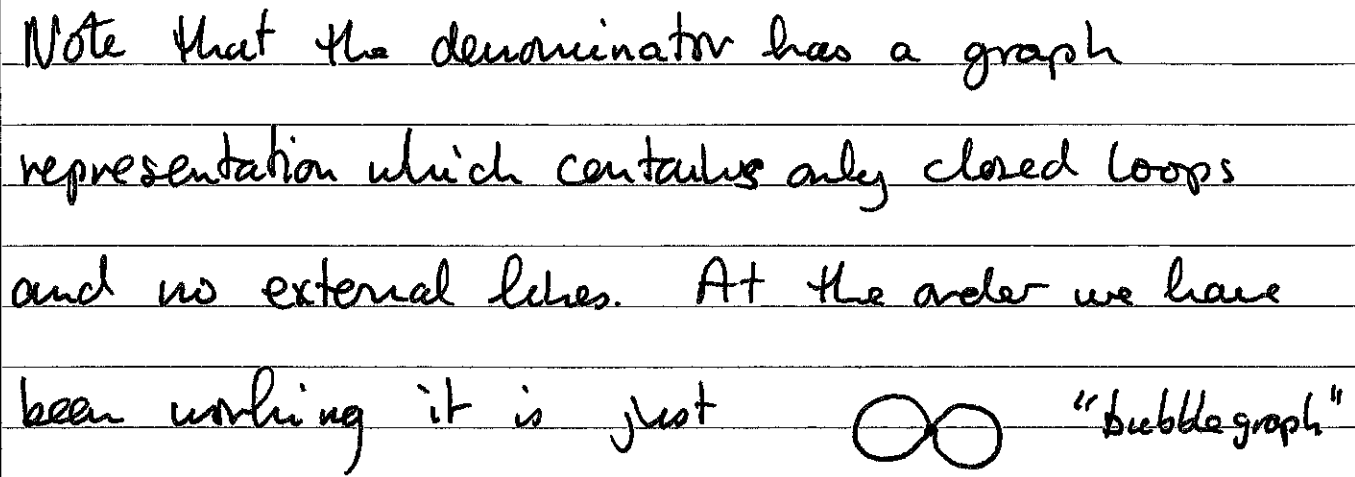 Note that the denominator has a graph
representation which contains only closed loops
and no external lines. At the order we have
been working it is just "bubble graph"